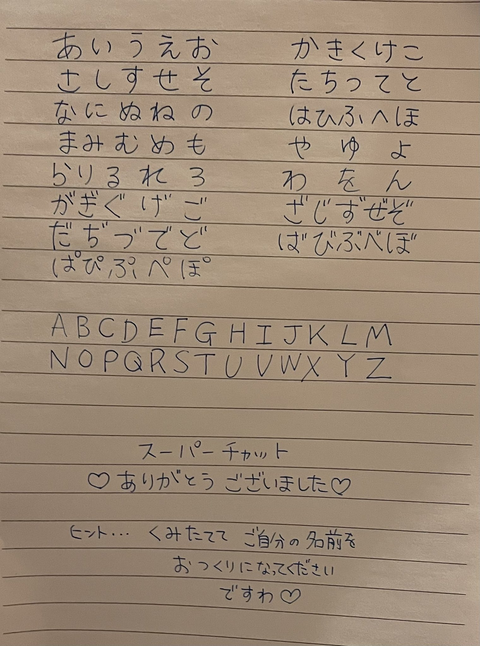 あいうえお かきくけこ
さしすせそ たちつてと
なにぬねの はひふへほ
まみむめも や ゆ よ
らりるれろ わ を ん
がぎぐげご ざじずぜぞ
だぢづでど ばびぶべぼ
ぱぴぷぺぽ
ABCDEFGHIJKLM
NOPQRSTUVWXYZ
スーパーチャット
♡ありがとうございました♡
ヒント… くみたてて ご自分の名前を
おつくりになってください
ですわ♡